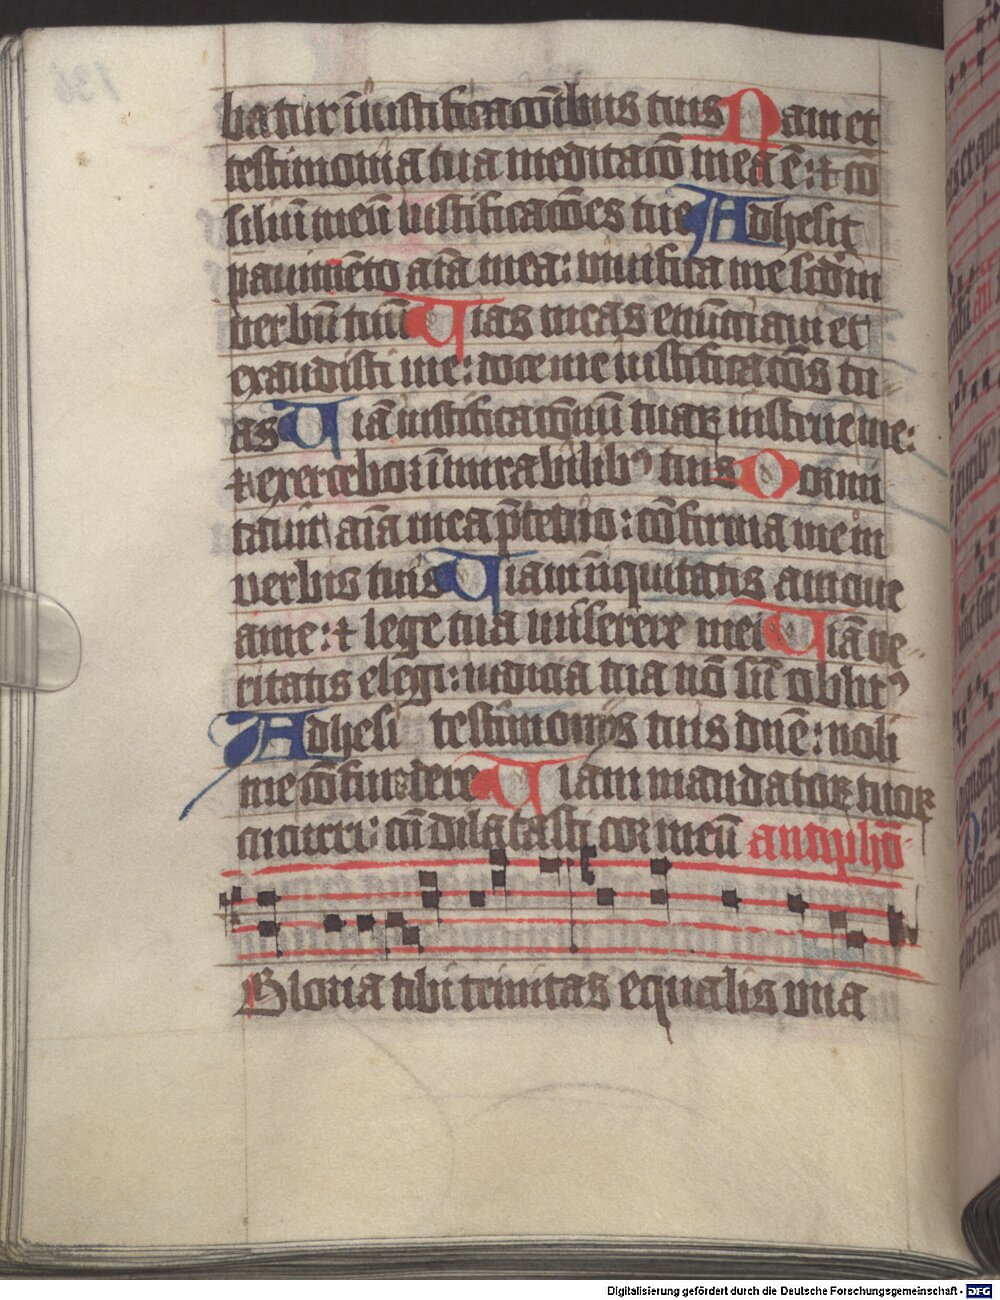 batur ī iustificacōibus tuis Nam et
testimonia tua meditacō mea ē: ⁊ cō
siliū meū iustificacōes tue Adhesit
pauimēto aīa mea: viuifica me scdm
verbū tuū Vias meas enūciaui et
exaudisti me: doce me iustificacōs tu
as Viā iustificacōnū tuaꝝ instrue me:
⁊ exercebor ī mirabilibꝰ tuis Dormi
tauit aīa mea p̄ tedio: cōfirma me in
verbis tuis Viam īiquitatis amoue
a me: ⁊ lege tua miserere mei Viā ve
ritatis elegi: iudicia tua nō sū oblitꝰ
Adhesi testimoniis tuis dn̄e: noli
me cōfundere Viam mandatoꝝ tuoꝝ
cucurri: cū dilatasti cor meū antiphō
Gloria tibi trinitas equalis vna
136
Digitalisierung gefördert durch die Deutsche Forschungsgemeinschaft - DFG